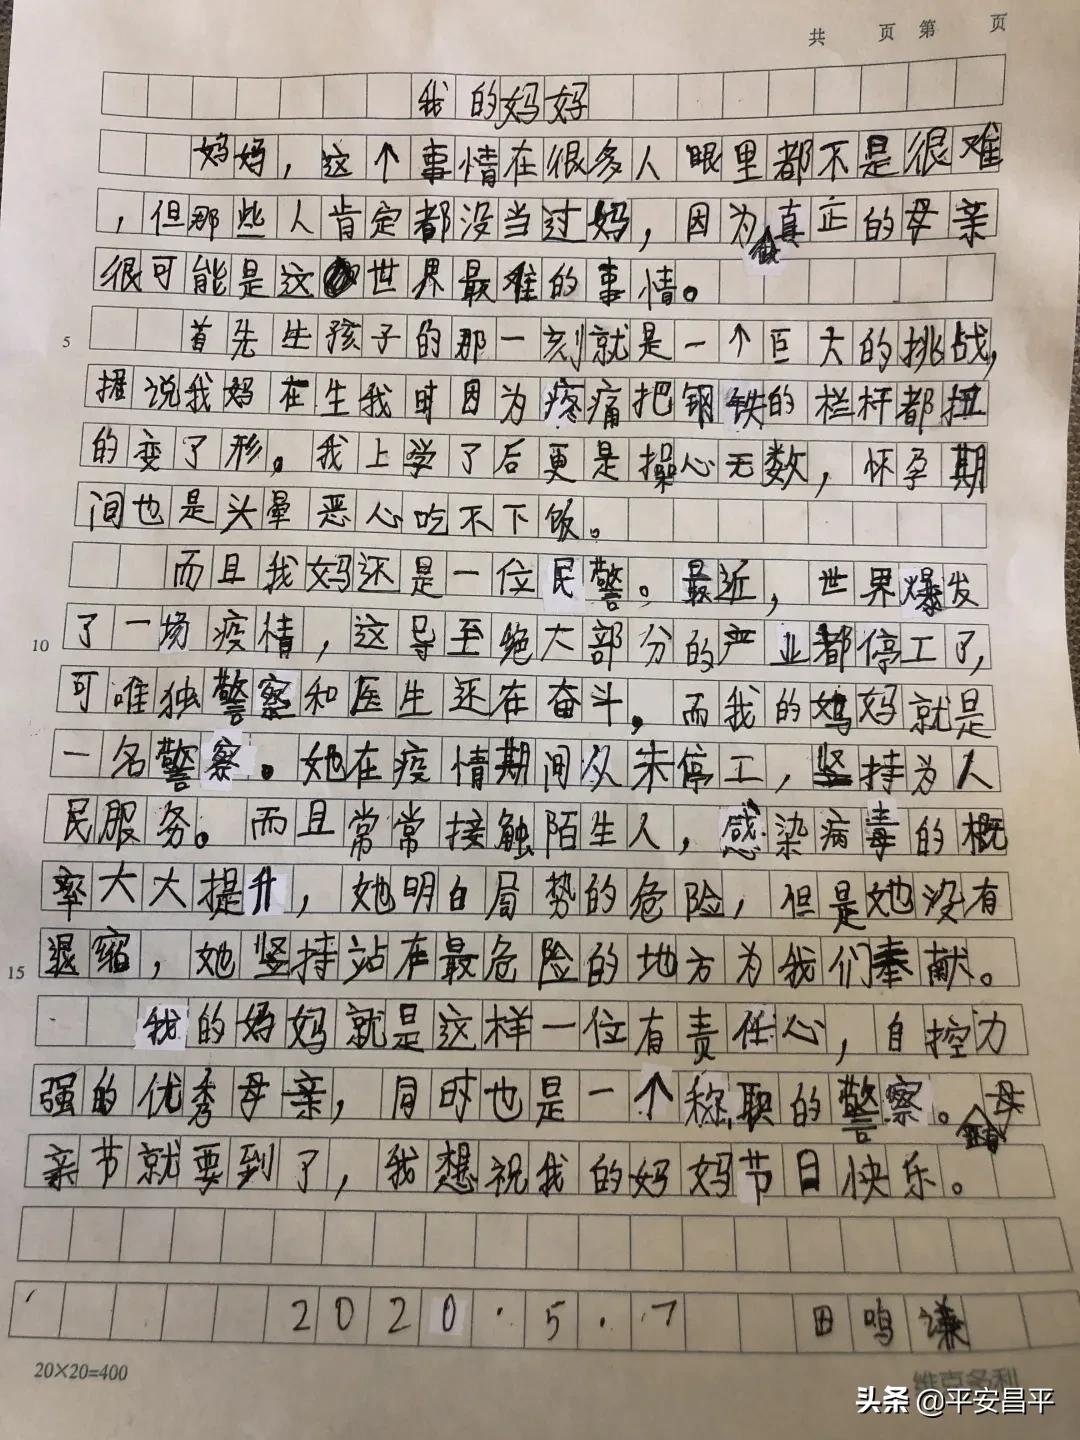 共 页 第 页
我的妈妈
妈妈，这个事情在很多人眼里都不是很难
，但那些人肯定都没当过妈，因为做真正的母亲
很可能是这世界最难的事情。
5 首先生孩子的那一刻就是一个巨大的挑战，
据说我妈在生我时因为疼痛把钢铁的栏杆都扭
的变了形。我上学了后更是操心无数，怀孕期
间也是头晕恶心吃不下饭。
而且我妈还是一位民警。最近，世界爆发
10 了一场疫情，这导至绝大部分的产业都停工了，
可唯独警察和医生还在奋斗，而我的妈妈就是
一名警察。她在疫情期间从未停工，坚持为人
民服务。而且常常接触陌生人，感染病毒的概
率大大提升，她明白局势的危险，但是她没有
15 退缩，她坚持站在最危险的地方为我们奉献。
我的妈妈就是这样一位有责任心，自控力
强的优秀母亲，同时也是一个称职的警察。母
亲节就要到了，我想祝我的妈妈节日快乐。
2020.5.7 田鸣谦
20×20=400
头条 @平安昌平